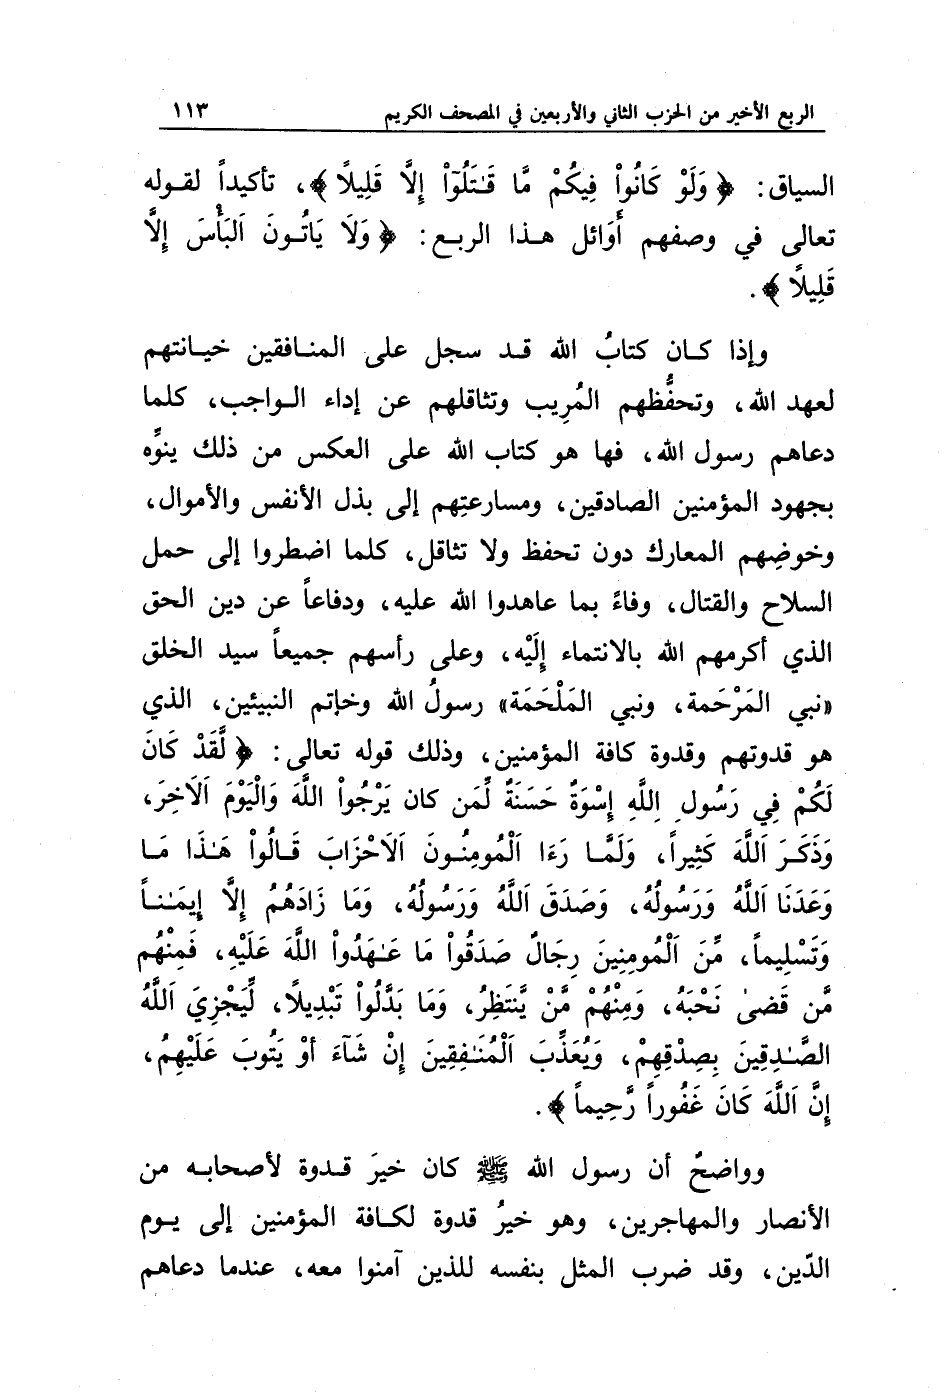 الربع الأخير من الحزب الثاني والأربعين في المصحف الكريم ١١٣
السياق: ﴿ وَلَوْ كَانُواْ فِيكُمْ مَّا قَـٰتَلُوٓاْ إِلَّا قَلِيلًا ﴾، تأكيداً لقوله
تعالى في وصفهم أَوَائل هذا الربع: ﴿ وَلَا يَاتُونَ اَلبَأْسَ إِلَّا
قَلِيلًا ﴾.
وإذا كان كتابُ الله قد سجل على المنافقين خيانتهم
لعهد الله، وتحفُّظهم المُرِيب وتثاقلهم عن إداء الواجب، كلما
دعاهم رسول الله، فها هو كتاب الله على العكس من ذلك ينوِّه
بجهود المؤمنين الصادقين، ومسارعتِهم إلى بذل الأنفس والأموال،
وخوضِهم المعارك دون تحفظ ولا تثاقل، كلما اضطروا إلى حمل
السلاح والقتال، وفاءً بما عاهدوا الله عليه، ودفاعاً عن دين الحق
الذي أكرمهم الله بالانتماء إِلَيْه، وعلى رأسهم جميعاً سيد الخلق
«نبي المَرْحَمة، ونبي المَلْحَمَة» رسولُ الله وخاتم النبيئين، الذي
هو قدوتهم وقدوة كافة المؤمنين، وذلك قوله تعالى: ﴿ لَّقَدْ كَانَ
لَكُمْ فِي رَسُولِ اِللَّهِ إِسْوَةٌ حَسَنَةٌ لِّمَن كان يَرْجُواْ اللَّهَ وَالْيَوْمَ اَلَاخِرَ،
وَذَكَرَ اَللَّهَ كَثِيراً، وَلَمَّا رَءَا اَلْمُومِنُونَ اَلَاحْزَابَ قَالُواْ هَـٰذَا مَا
وَعَدَنَا اَللَّهُ وَرَسُولُهُ، وَصَدَقَ اَللَّهُ وَرَسُولُهُ، وَمَا زَادَهُمُ إِلَّا إِيمَـٰناً
وَتَسْلِيماً، مِّنَ اَلْمُومِنِينَ رِجَالٌ صَدَقُواْ مَا عَـٰهَدُواْ اللَّهَ عَلَيْهِ، فَمِنْهُم
مَّن قَضىٰ نَحْبَهُ، وَمِنْهُمْ مَّنْ يَّنتَظِرُ، وَمَا بَدَّلُواْ تَبْدِيلًا، لِّيَجْزِيَ اَللَّهُ
الصَّـٰدِقِينَ بِصِدْقِهِمْ، وَيُعَذِّبَ اَلْمُنَـٰفِقِينَ إِنْ شَآءَ أوْ يَتُوبَ عَلَيْهِمُ،
إِنَّ اَللَّهَ كَانَ غَفُوراً رَّحِيماً ﴾.
وواضحٌ أن رسول الله ﷺ كان خيرَ قدوة لأصحابه من
الأنصار والمهاجرين، وهو خيرُ قدوة لكافة المؤمنين إلى يوم
الدّين، وقد ضرب المثل بنفسه للذين آمنوا معه، عندما دعاهم